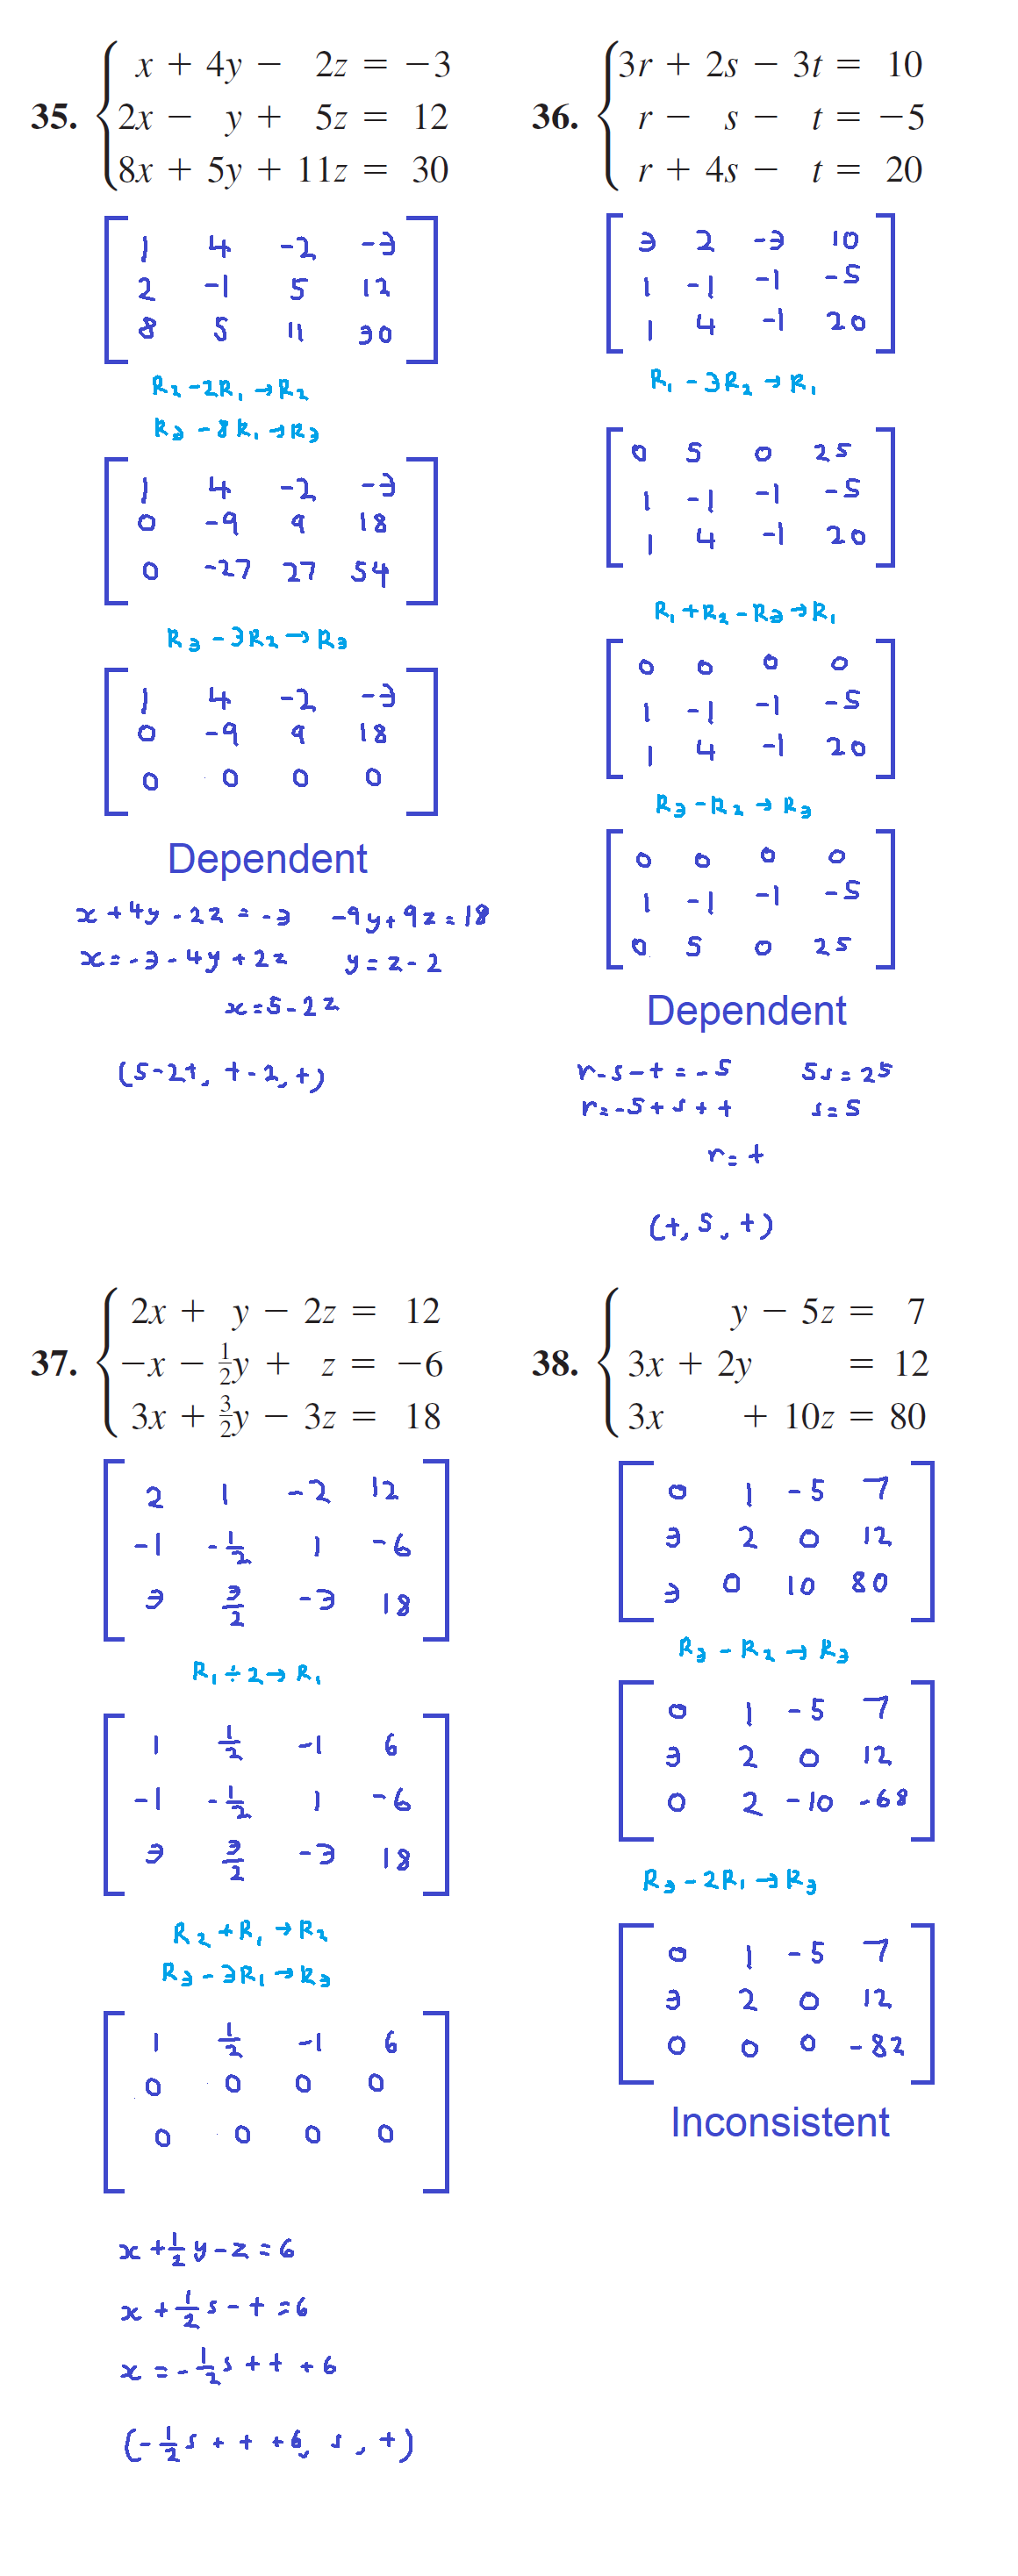 35.
x + 4y − 2z = −3
2x − y + 5z = 12
8x + 5y + 11z = 30
1 4 -2 -3
2 -1 5 12
8 5 11 30
R₂ - 2R₁ → R₂
R₃ - 8R₁ → R₃
1 4 -2 -3
0 -9 9 18
0 -27 27 54
R₃ - 3R₂ → R₃
1 4 -2 -3
0 -9 9 18
0 0 0 0
Dependent
x + 4y - 2z = -3 -9y + 9z = 18
x = -3 - 4y + 2z y = z - 2
x = 5 - 2z
(5-2t, t-2, t)
36.
3r + 2s − 3t = 10
r − s − t = −5
r + 4s − t = 20
3 2 -3 10
1 -1 -1 -5
1 4 -1 20
R₁ - 3R₂ → R₁
0 5 0 25
1 -1 -1 -5
1 4 -1 20
R₁ + R₂ - R₃ → R₁
0 0 0 0
1 -1 -1 -5
1 4 -1 20
R₃ - R₂ → R₃
0 0 0 0
1 -1 -1 -5
0 5 0 25
Dependent
r - s - t = -5 5s = 25
r = -5 + s + t s = 5
r = t
(t, 5, t)
37.
2x + y − 2z = 12
−x − ½y + z = −6
3x + 3/2y − 3z = 18
2 1 -2 12
-1 -½ 1 -6
3 3/2 -3 18
R₁ ÷ 2 → R₁
1 ½ -1 6
-1 -½ 1 -6
3 3/2 -3 18
R₂ + R₁ → R₂
R₃ - 3R₁ → R₃
1 ½ -1 6
0 0 0 0
0 0 0 0
x + ½y - z = 6
x + ½s - t = 6
x = -½s + t + 6
(-½s + t + 6, s, t)
38.
y − 5z = 7
3x + 2y = 12
3x + 10z = 80
0 1 -5 7
3 2 0 12
3 0 10 80
R₃ - R₂ → R₃
0 1 -5 7
3 2 0 12
0 2 -10 -68
R₃ - 2R₁ → R₃
0 1 -5 7
3 2 0 12
0 0 0 -82
Inconsistent